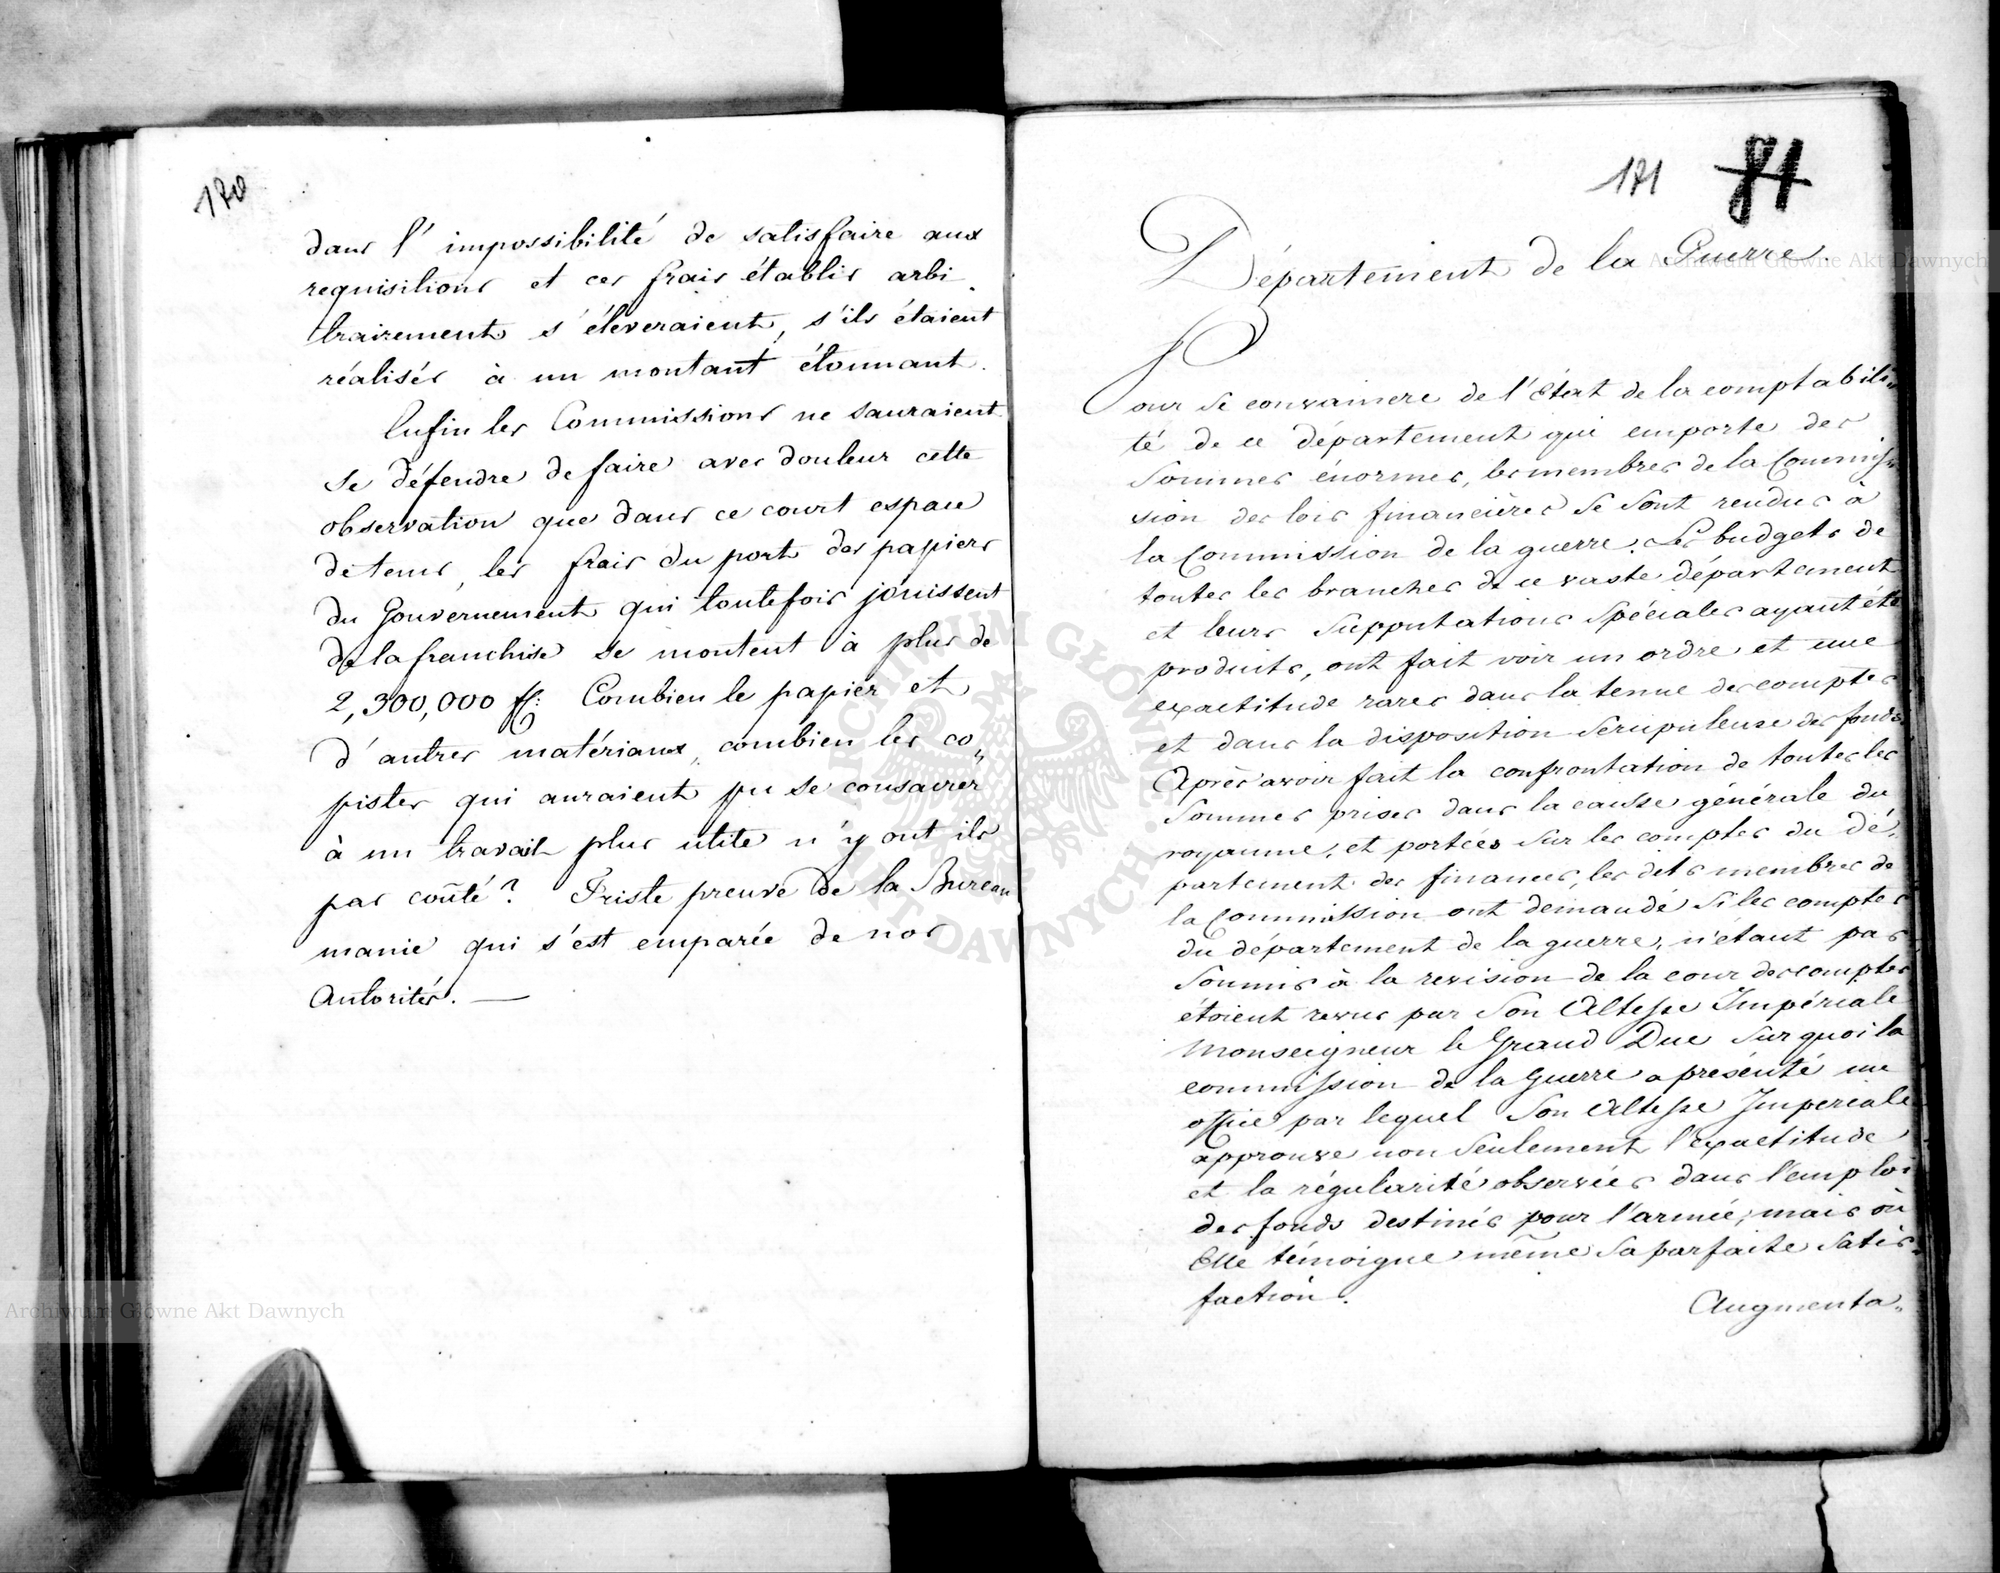 170
dans l'impossibilité de satisfaire aux
requisitions et ces frais établis arbi-
trairement s'éleveraient, s'ils étaient
réalisés à un montant étonnant.
Enfin les Commissions ne sauraient
se défendre de faire avec douleur cette
observation que dans ce court espace
de tems, les frais du port des papiers
du Gouvernement qui toutefois jouissent
de la franchise se montent à plus de
2,300,000 fl: Combien le papier et
d'autres matériaux, combien les co„
pistes qui auraient pu se consacrer
à un travail plus utile n'y ont ils
pas coûté? Triste preuve de la Bureau
manie qui s'est emparée de nos
Autorités. —
171 81
Département de la Guerre.
Pour se convaincre de l'Etat de la comptabili„
té de ce département qui emporte des
sommes énormes, les membres de la Commis„
sion des lois financières se sont rendus à
la Commission de la guerre. Les budgets de
toutes les branches de ce vaste département
et leurs supputations spéciales ayant été
produits, ont fait voir un ordre et une
exactitude rares dans la tenue des comptes
et dans la disposition scrupuleuse des fonds.
Après avoir fait la confrontation de toutes les
sommes prises dans la caisse générale du
royaume, et portées sur les comptes du dé„
partement des finances, les dits membres de
la Commission ont demandé si les comptes
du département de la guerre, n'étant pas
soumis à la revision de la cour des comptes
étoient revus par Son Altesse Impériale
Monseigneur le Grand Duc sur quoi la
commission de la Guerre a présenté un
office par lequel Son Altesse Imperiale
approuve non seulement l'exactitude
et la régularité observées dans l'emploi
des fonds destinés pour l'armée, mais où
Elle témoigne même sa parfaite satis„
faction.
Augmenta„
Archiwum Główne Akt Dawnych
Archiwum Główne Akt Dawnych
ARCHIWUM GŁÓWNE AKT DAWNYCH